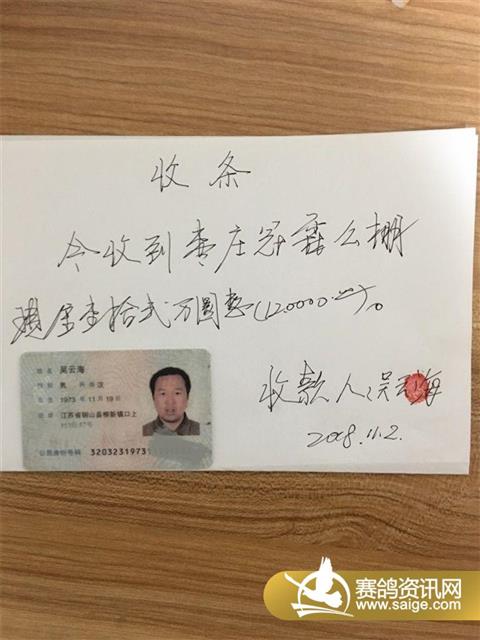 收条
今收到枣庄冠霖公棚
奖金壹拾贰万圆整(120000.00)。
收款人吴云海
2018.11.2.
姓名 吴云海
性别 男 民族 汉
出生 1973 年 11 月 19 日
住址 江苏省铜山县柳新镇口上
公民身份号码 3203231973
赛鸽资讯网
www.saige.com